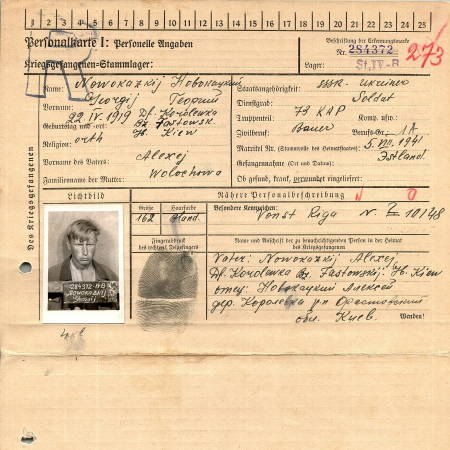 1 2 3 4 5 6 7 8 9 10 11 12 13 14 15 16 17 18 19 20 21 22 23 24 25
Personalkarte I: Personelle Angaben
Beschriftung der Erkennungsmarke
Nr. 284372
273
Kriegsgefangenen-Stammlager:
Lager: St, IV-B
Des Kriegsgefangenen
Name: Nowokazkij Новокацкий
Staatsangehörigkeit: SSSR. Ukrainer
Vorname: Georgij Георгий
Dienstgrad: Soldat
22.IV.1919 Df. Korolewka
Truppenteil: 73 KAP Komp. usw.:
Geburtstag und -ort: Bz. Fastowsk.
Gb. Kiew
Zivilberuf: Bauer Berufs-Gr.: 1A
Religion: orth
Matrikel Nr. (Stammrolle des Heimatstaates):
5.VII.1941
Vorname des Vaters: Alexej
Gefangennahme (Ort und Datum): Estland
Familienname der Mutter: Wolochowa
Ob gesund, krank, verwundet eingeliefert:
Lichtbild
Nähere Personalbeschreibung
Größe Haarfarbe Besondere Kennzeichen:
162 bland. Vonst Riga N. 10148
Fingerabdruck
des rechten Zeigefingers
Name und Anschrift der zu benachrichtigenden Person in der Heimat
des Kriegsgefangenen
284372 IVB
NOWOKAZKIJ
Georgij
Vater: Nowokazkij Alexej
Df. Korolewka Bz. Fastowskij Gb. Kiew
отец: Новокацкий Алексей
дер. Королевка р-н Фастовский
обл. Киев.
Wenden!